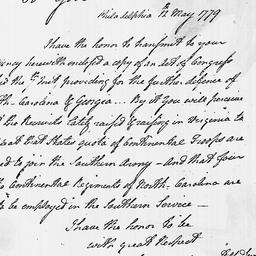 Philadelphia 12 May 1779
I have the honor to transmit to your
herewith enclosed a copy of an act of Congress
the inst. providing for the further defence of
th. Carolina & Georgia... By it you will perceive
the Recruits lately raised & raising in Virginia to
that States quota of Continental Troops are
to join the Southern Army – and that four
Continental Regiments of North. Carolina are
to be employed in the Southern Service –
I have the honor to be
with great Respect